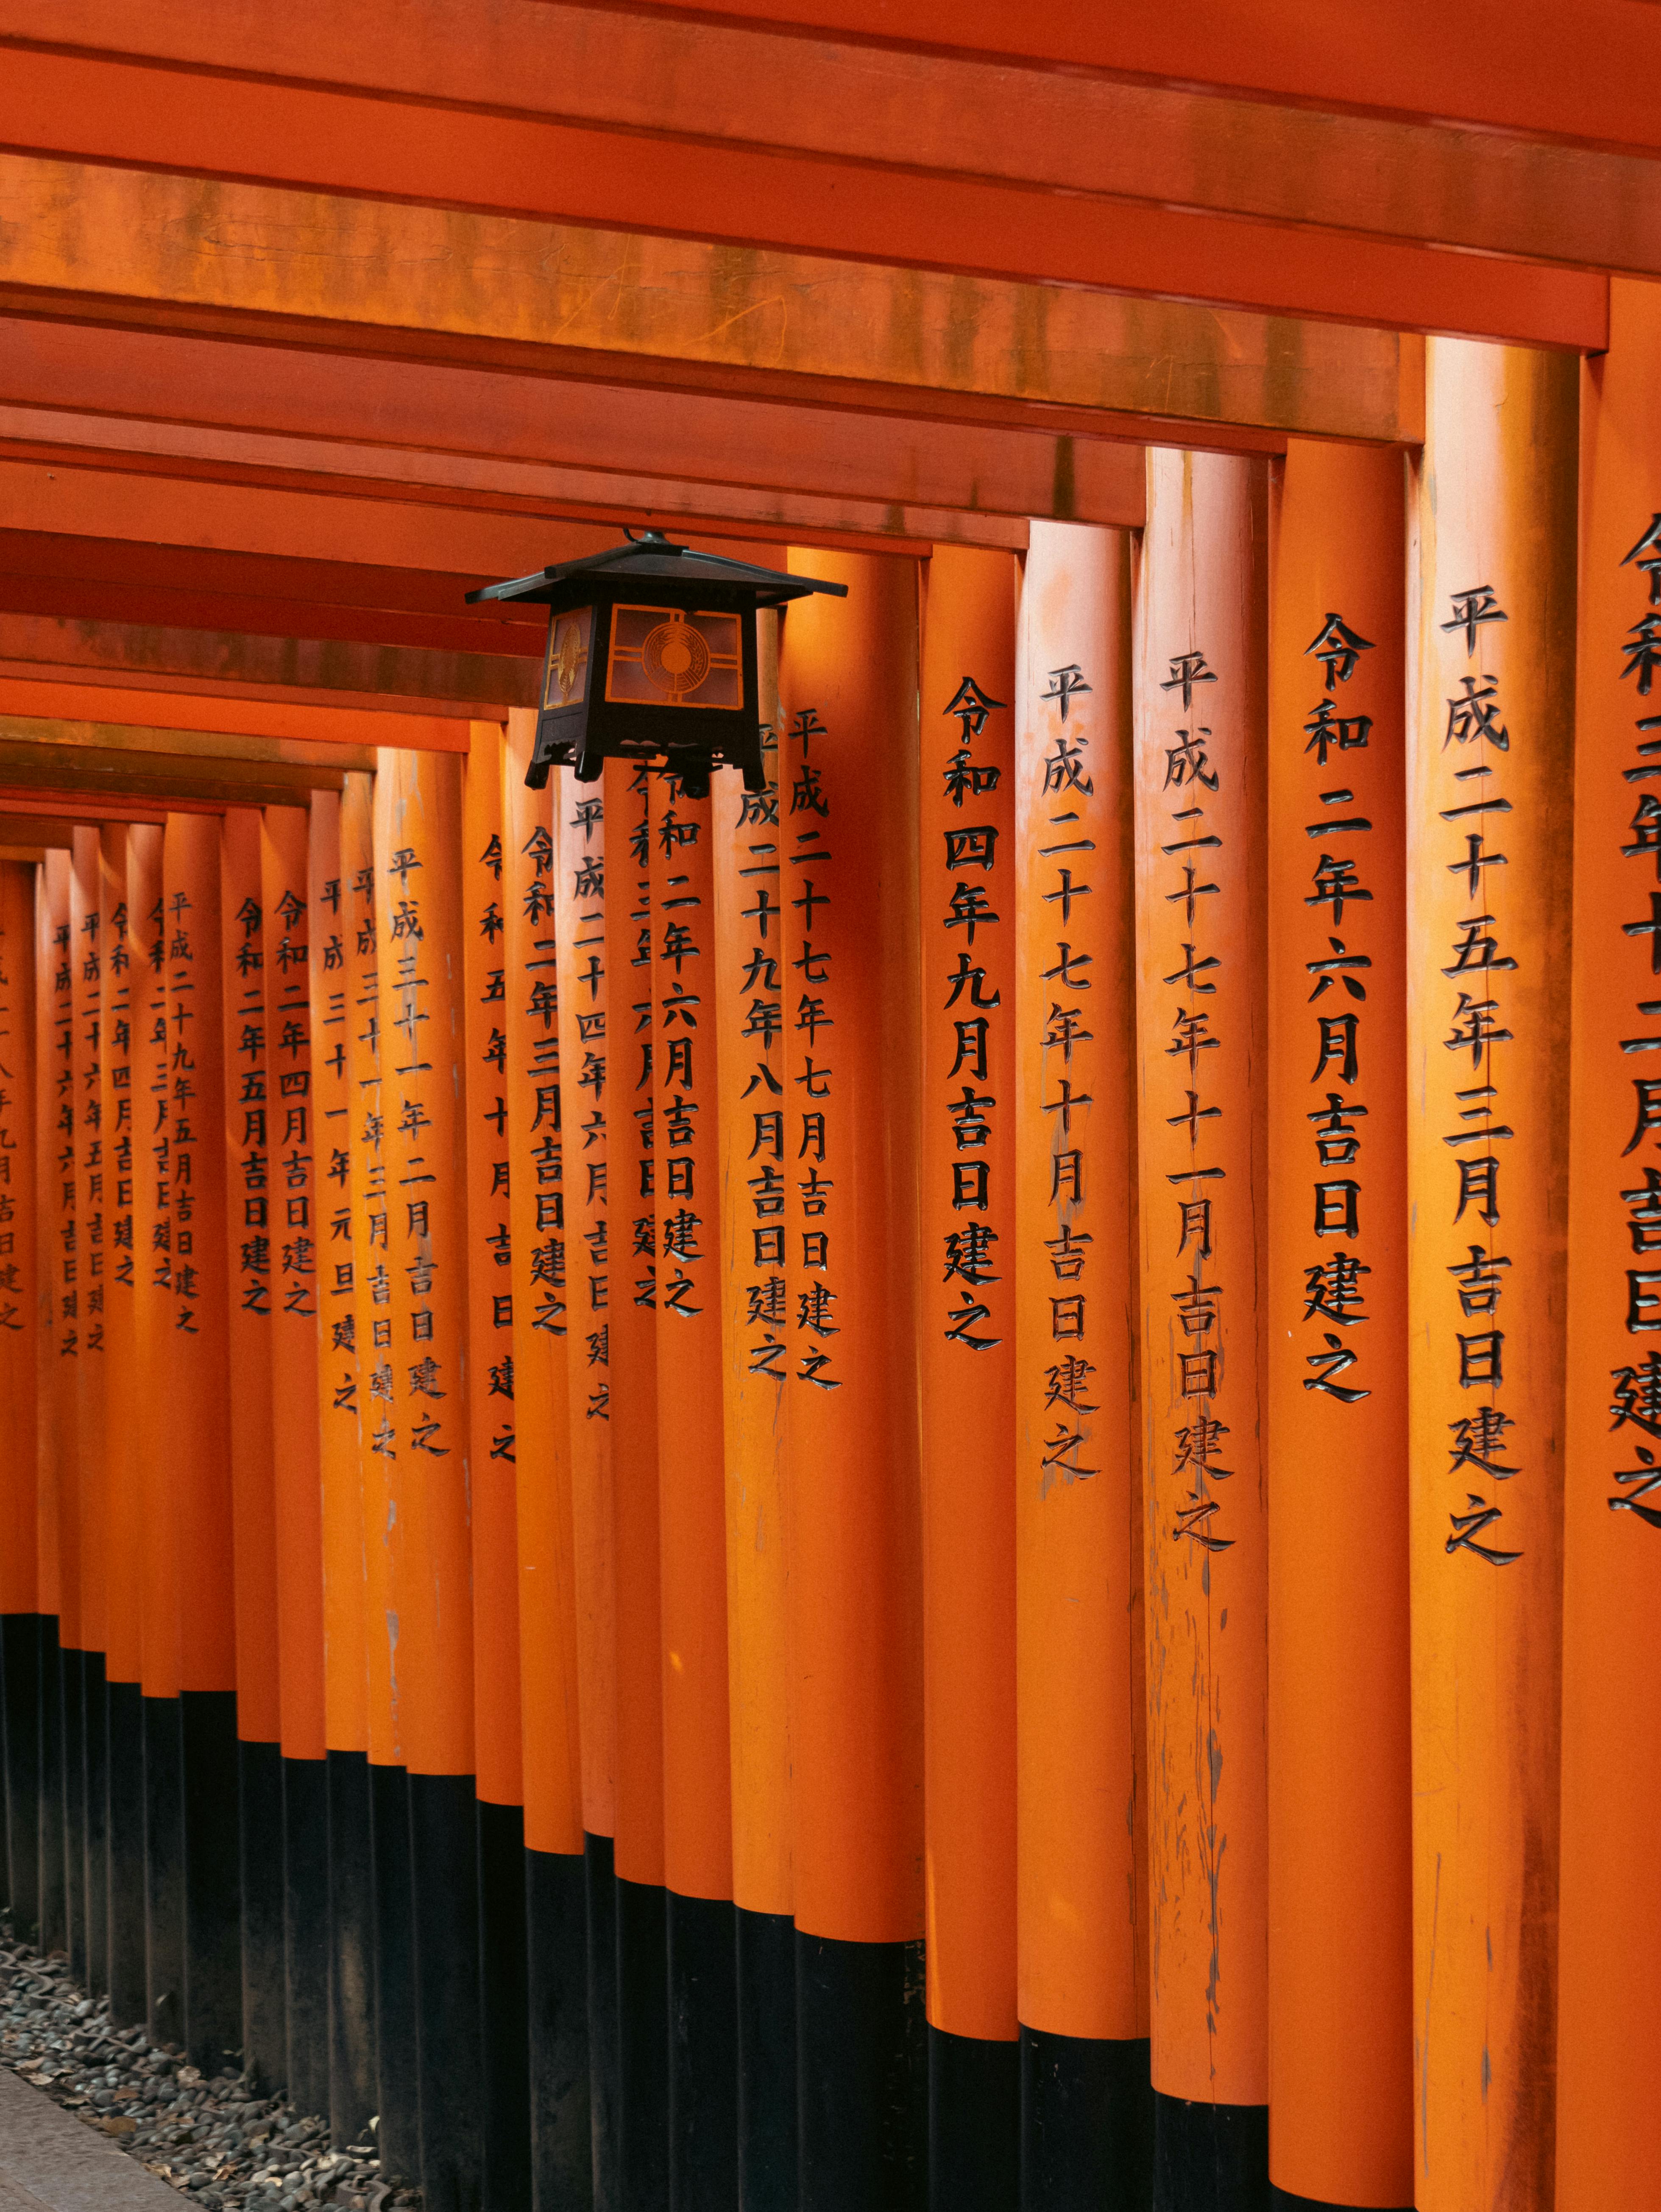 令和三年十二月吉日建之
平成二十五年三月吉日建之
令和二年六月吉日建之
平成二十七年十一月吉日建之
平成二十七年十月吉日建之
令和四年九月吉日建之
平成二十七年七月吉日建之
平成二十九年八月吉日建之
令和二年六月吉日建之
令和三年六月吉日建之
平成二十四年六月吉日建之
令和二年三月吉日建之
令和五年十月吉日建之
平成三十一年二月吉日建之
平成三十一年三月吉日建之
平成三十一年元旦建之
令和二年四月吉日建之
令和二年五月吉日建之
平成二十九年五月吉日建之
令和二年三月吉日建之
令和二年四月吉日建之
平成二十六年五月吉日建之
平成二十六年六月吉日建之
八年九月吉日建之